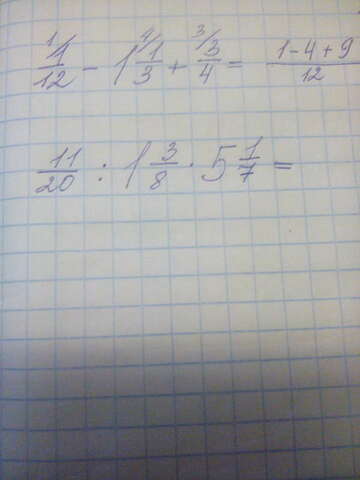 1/12 ¹⁄ - 1 1/3 ⁴⁄ + 3/4 ³⁄ = (1-4+9)/12
11/20 : 1 3/8 · 5 1/7 =